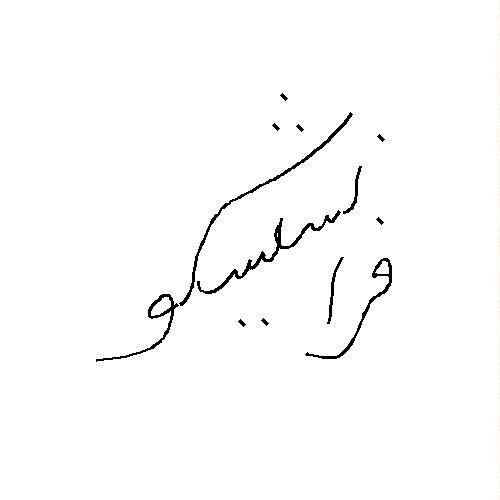 فرانشیسکو